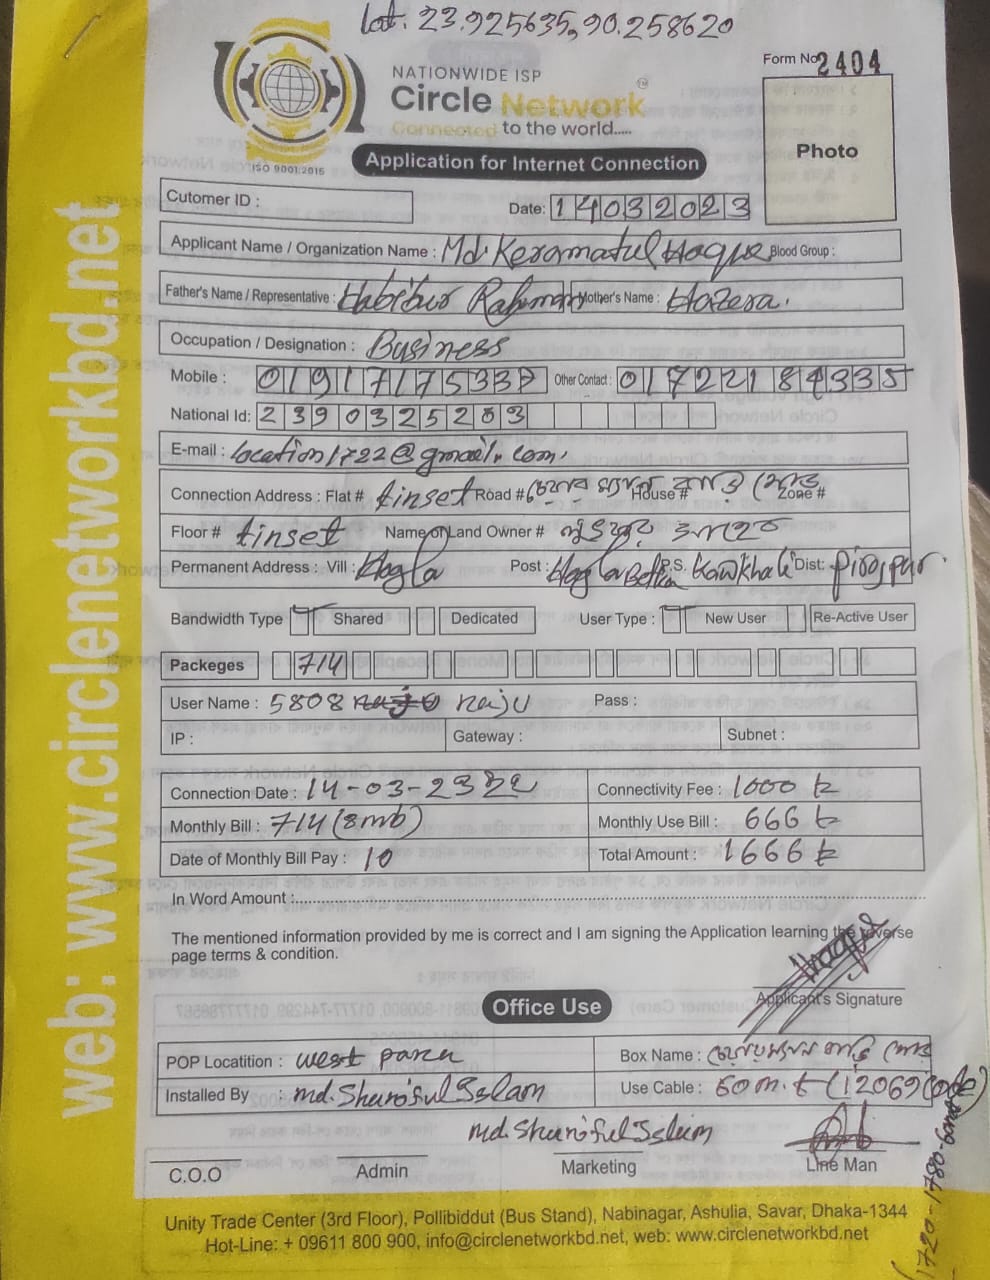 Lat. 23.925635, 90.258620
Form No 2404
NATIONWIDE ISP
Circle Network
Connected to the world.....
ISO 9001:2015
Application for Internet Connection
Photo
Cutomer ID :
Date: 14032023
Applicant Name / Organization Name : Md. Keramatul Haque Blood Group :
Father's Name / Representative : Habibur Rahman Mother's Name : Hazera.
Occupation / Designation : Business
Mobile : 01917175337 Other Contact : 01722184335
National Id: 2390325203
E-mail : location1722@gmail.com.
Connection Address : Flat # tinset Road # House # Zone #
Floor # tinset Name of Land Owner #
Permanent Address : Vill : Hogla Post : Hogla Betka P.S. Kawkhali Dist: Pirojpur.
Bandwidth Type Shared Dedicated User Type : New User Re-Active User
Packeges 714
User Name : 5808 raju Pass :
IP : Gateway : Subnet :
Connection Date : 14-03-23 Connectivity Fee : 1000 t
Monthly Bill : 714 (8mb) Monthly Use Bill : 666 t
Date of Monthly Bill Pay : 10 Total Amount : 1666 t
In Word Amount :
The mentioned information provided by me is correct and I am signing the Application learning the reverse
page terms & condition.
Haque
Applicant's Signature
Office Use
POP Locatition : west para Box Name :
Installed By : md. Shariful Islam Use Cable : 60 m. t (12069 code)
md. Shariful Islam
C.O.O Admin Marketing Line Man
1720-1780-60m
Unity Trade Center (3rd Floor), Pollibiddut (Bus Stand), Nabinagar, Ashulia, Savar, Dhaka-1344
Hot-Line: + 09611 800 900, info@circlenetworkbd.net, web: www.circlenetworkbd.net
web: www.circlenetworkbd.net